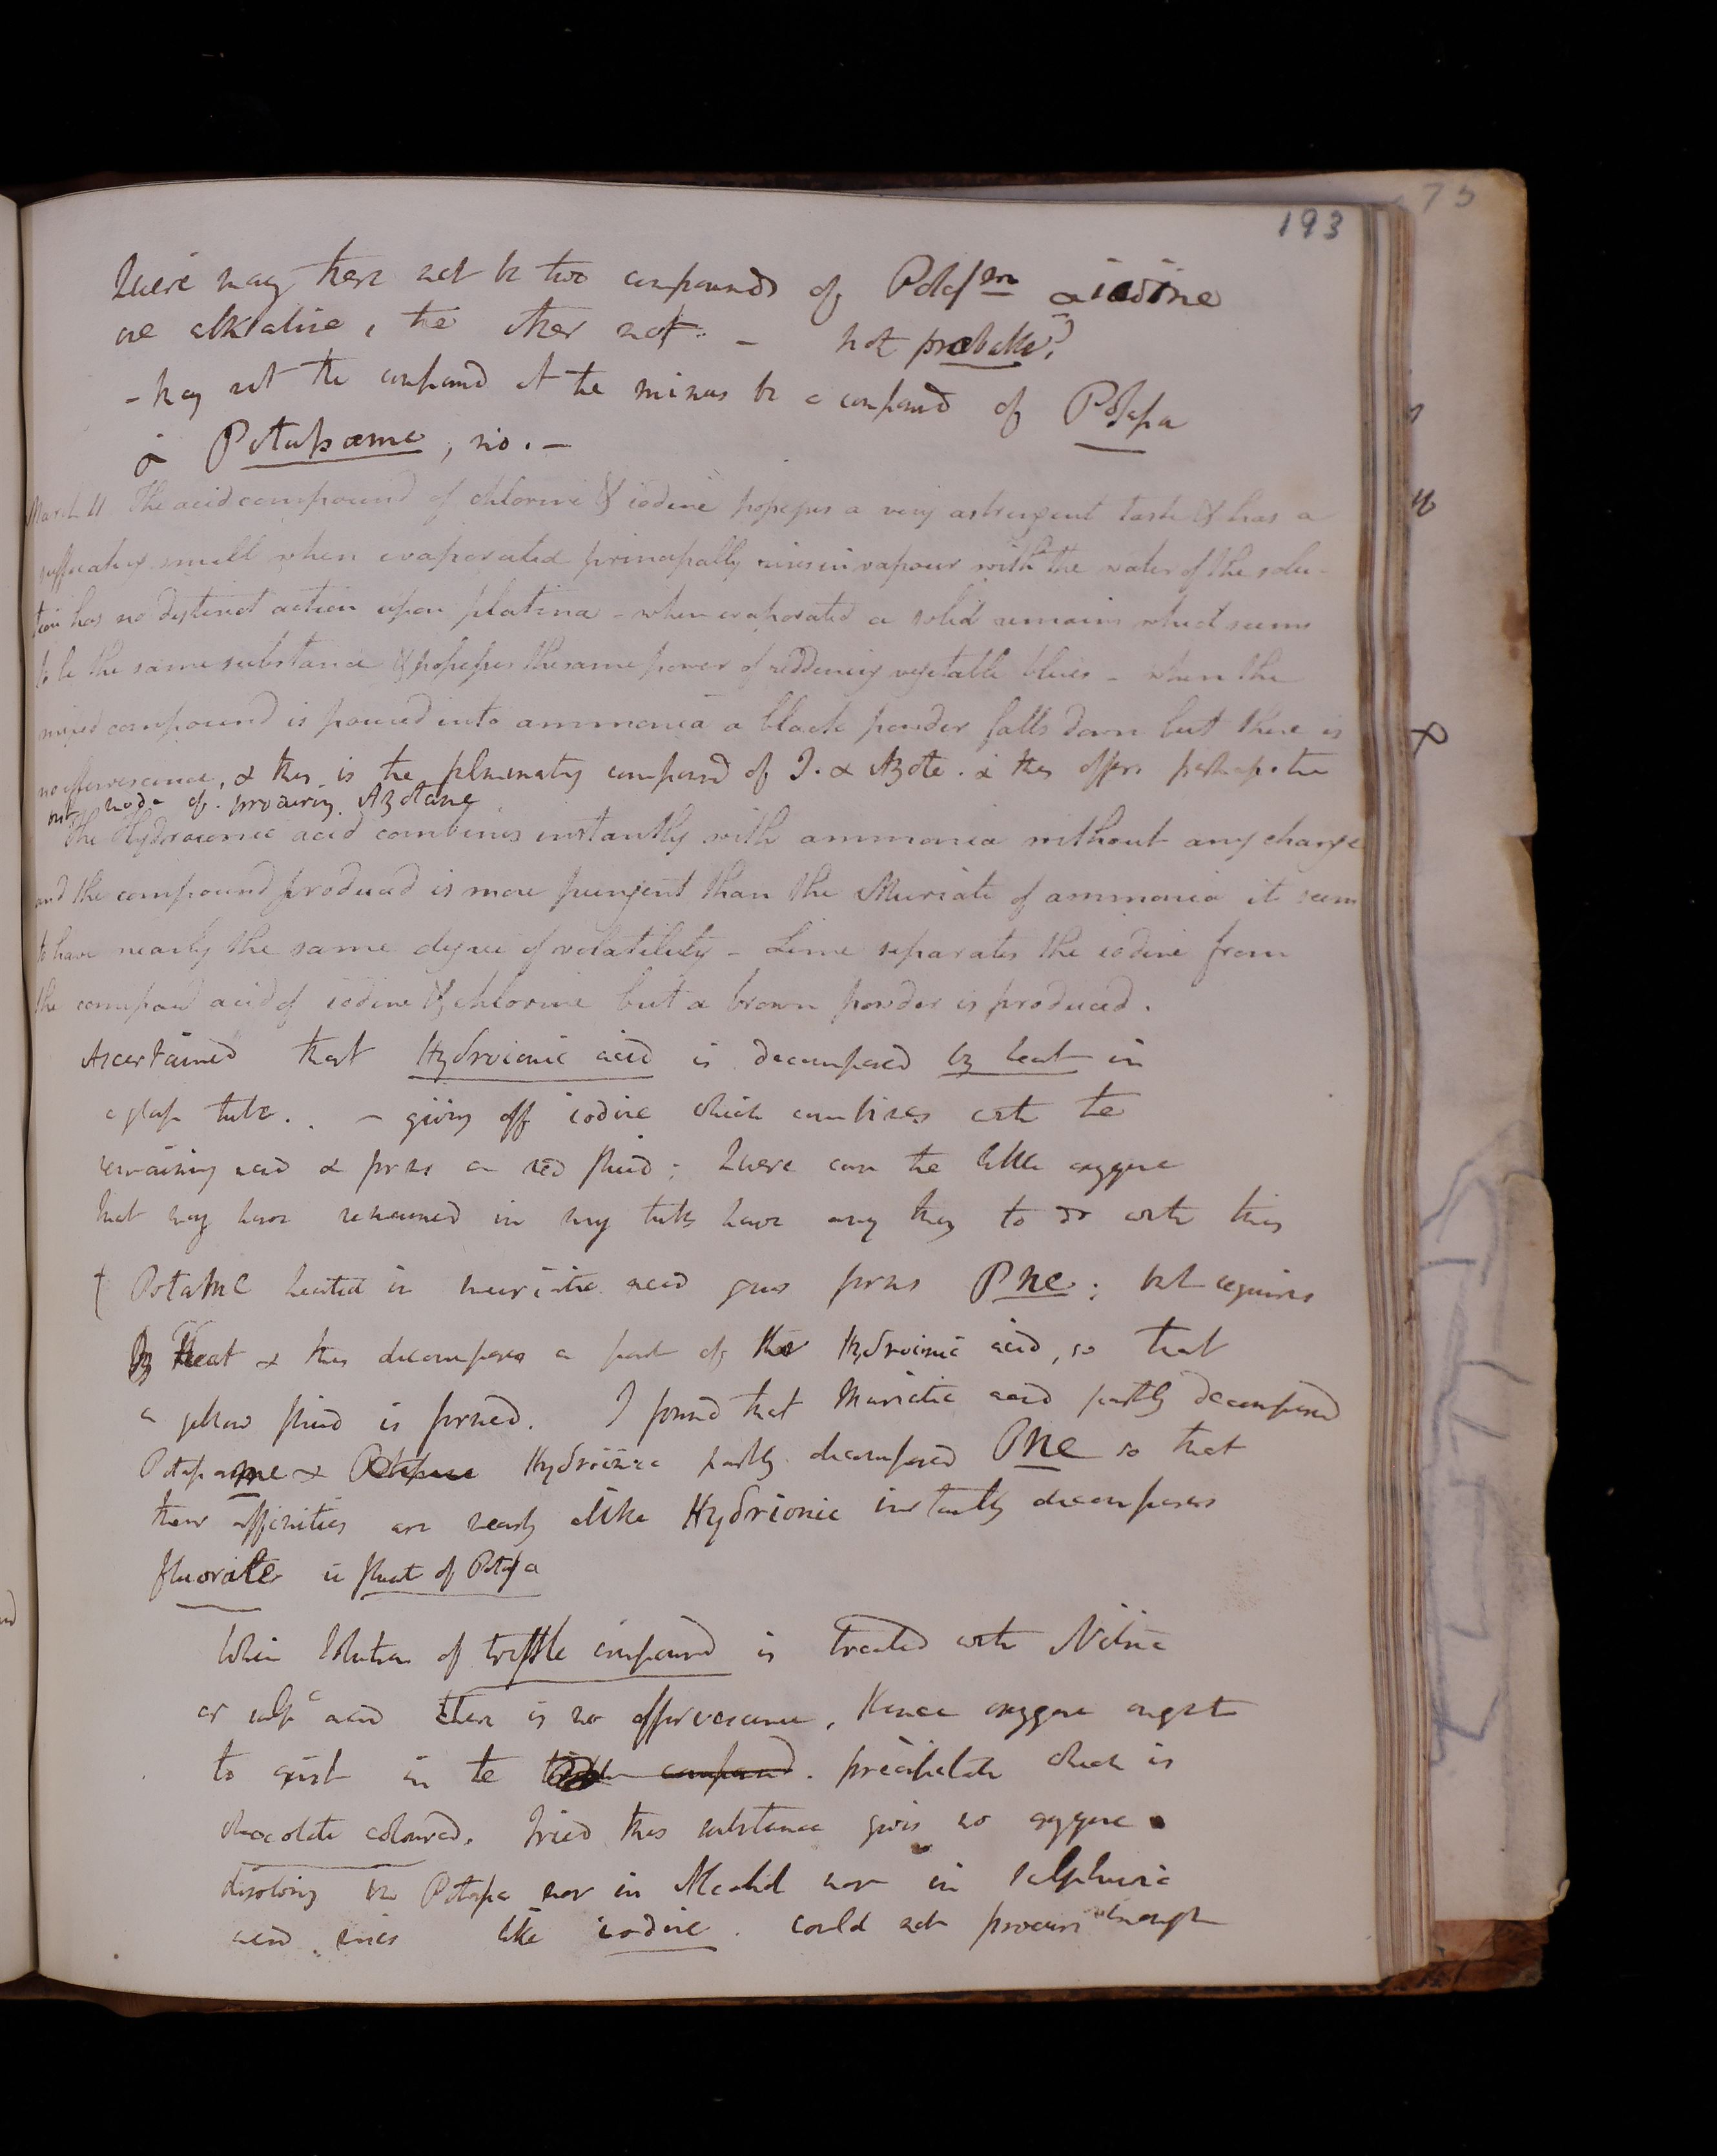 193
75
Quere may there not be two compounds of Potasm & iodine
one alkaline, the other not. - not probable?
- May not the compound at the minus be a compound of Potassa
& Potassame, no. -
March 11 The acid compound of chlorine & iodine possesses a very astringent taste & has a
suffocating smell when evaporated principally rises in vapour with the water of the solu-
tion has no distinct action upon platina - when evaporated a solid remains which seems
to be the same substance & possesses the same power of reddening vegetable blues - when the
mixed compound is poured into ammonia a black powder falls down but there is
no effervescence, & this is the fulminating compound of I. & Azote. & this offers perhaps the
best mode of procuring Azotane
The Hydroionic acid combines instantly with ammonia without any change
and the compound produced is more pungent than the Muriate of ammonia it seems
to have nearly the same degree of volatility - Lime separates the iodine from
the compound acid of iodine & chlorine but a brown powder is produced.
Ascertained that Hydroionic acid is decomposed by heat in
a glass tube. - giving off iodine which combines with the
remaining acid & forms a red fluid; Quere can the little oxygene
that may have remained in my tubes have any thing to do with this
heated in muriatic acid gas forms Pne; but requires
By Heat & this decomposes a part of the Hydroionic acid, so that
a yellow fluid is formed. I found that Muriatic acid partly decomposed
Potassame & Hydroionic partly decomposed Pne so that
their affinities are nearly alike Hydrionic instantly decomposes
fluorate ie fluat of Potassa
When solution of tripple compound is treated with Nitric
or sulpc acid there is no effervescence, Hence oxygene ought
to exist in the compound. precipitate which is
chocolate coloured. Tried this substance gives no oxygene
dissolving in Potassa nor in Alcohol nor in sulphuric
acid rises like iodine. Could not procure enough